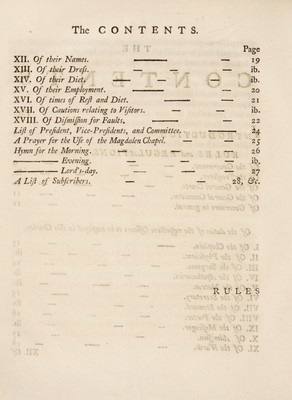 The CONTENTS.
Page
XII. Of their Names. — — 19
XIII. Of their Dreſs. — — — ib.
XIV. Of their Diet. — — — ib.
XV. Of their Employment. — — 20
XVI. Of times of Reſt and Diet. — — 21
XVII. Of Cautions relating to Viſitors. — — ib.
XVIII. Of Diſmiſſion for Faults, — — 22
Liſt of Preſident, Vice-Preſidents, and Committee. 24
A Prayer for the Uſe of the Magdalen Chapel. — — 25
Hymn for the Morning. — — — 26
——— Evening. — — — ib.
——— Lord's-day. — — — 27
A Liſt of Subſcribers. — — 28, &c.
RULES